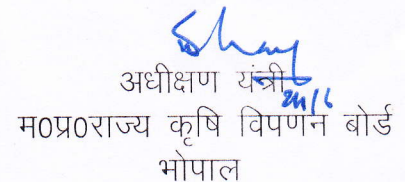 अधीक्षण यंत्री
24/6
म0प्र0राज्य कृषि विपणन बोर्ड
भोपाल